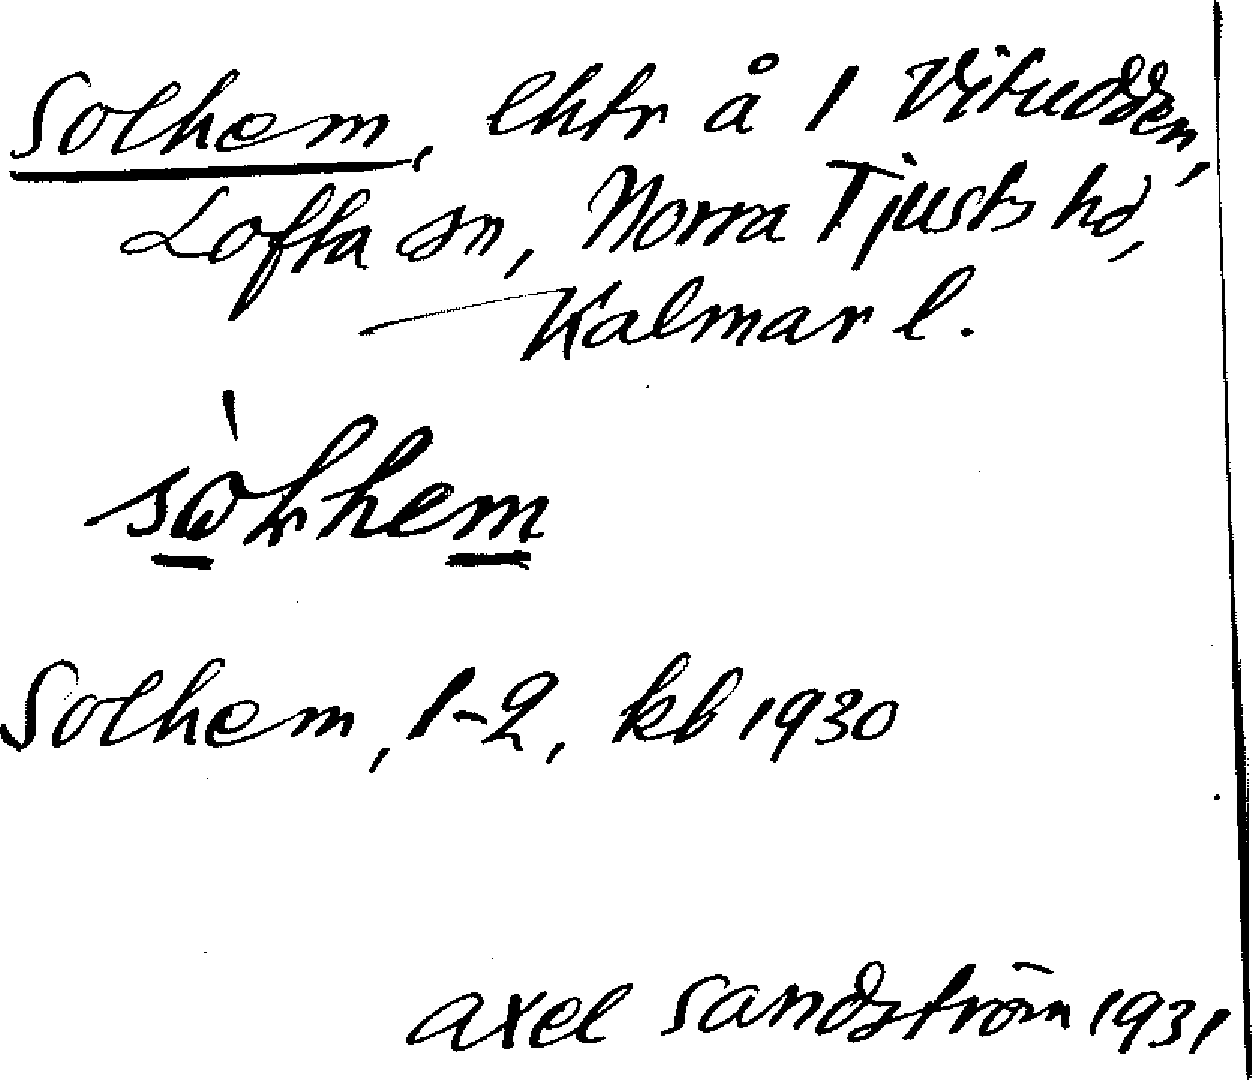 Solhem, lhtr å 1 Vitudden,
Lofta sn, Norra Tjusts hd,
Kalmar l.
Solhem, 1-2, kb 1930
Axel Sandström 1931